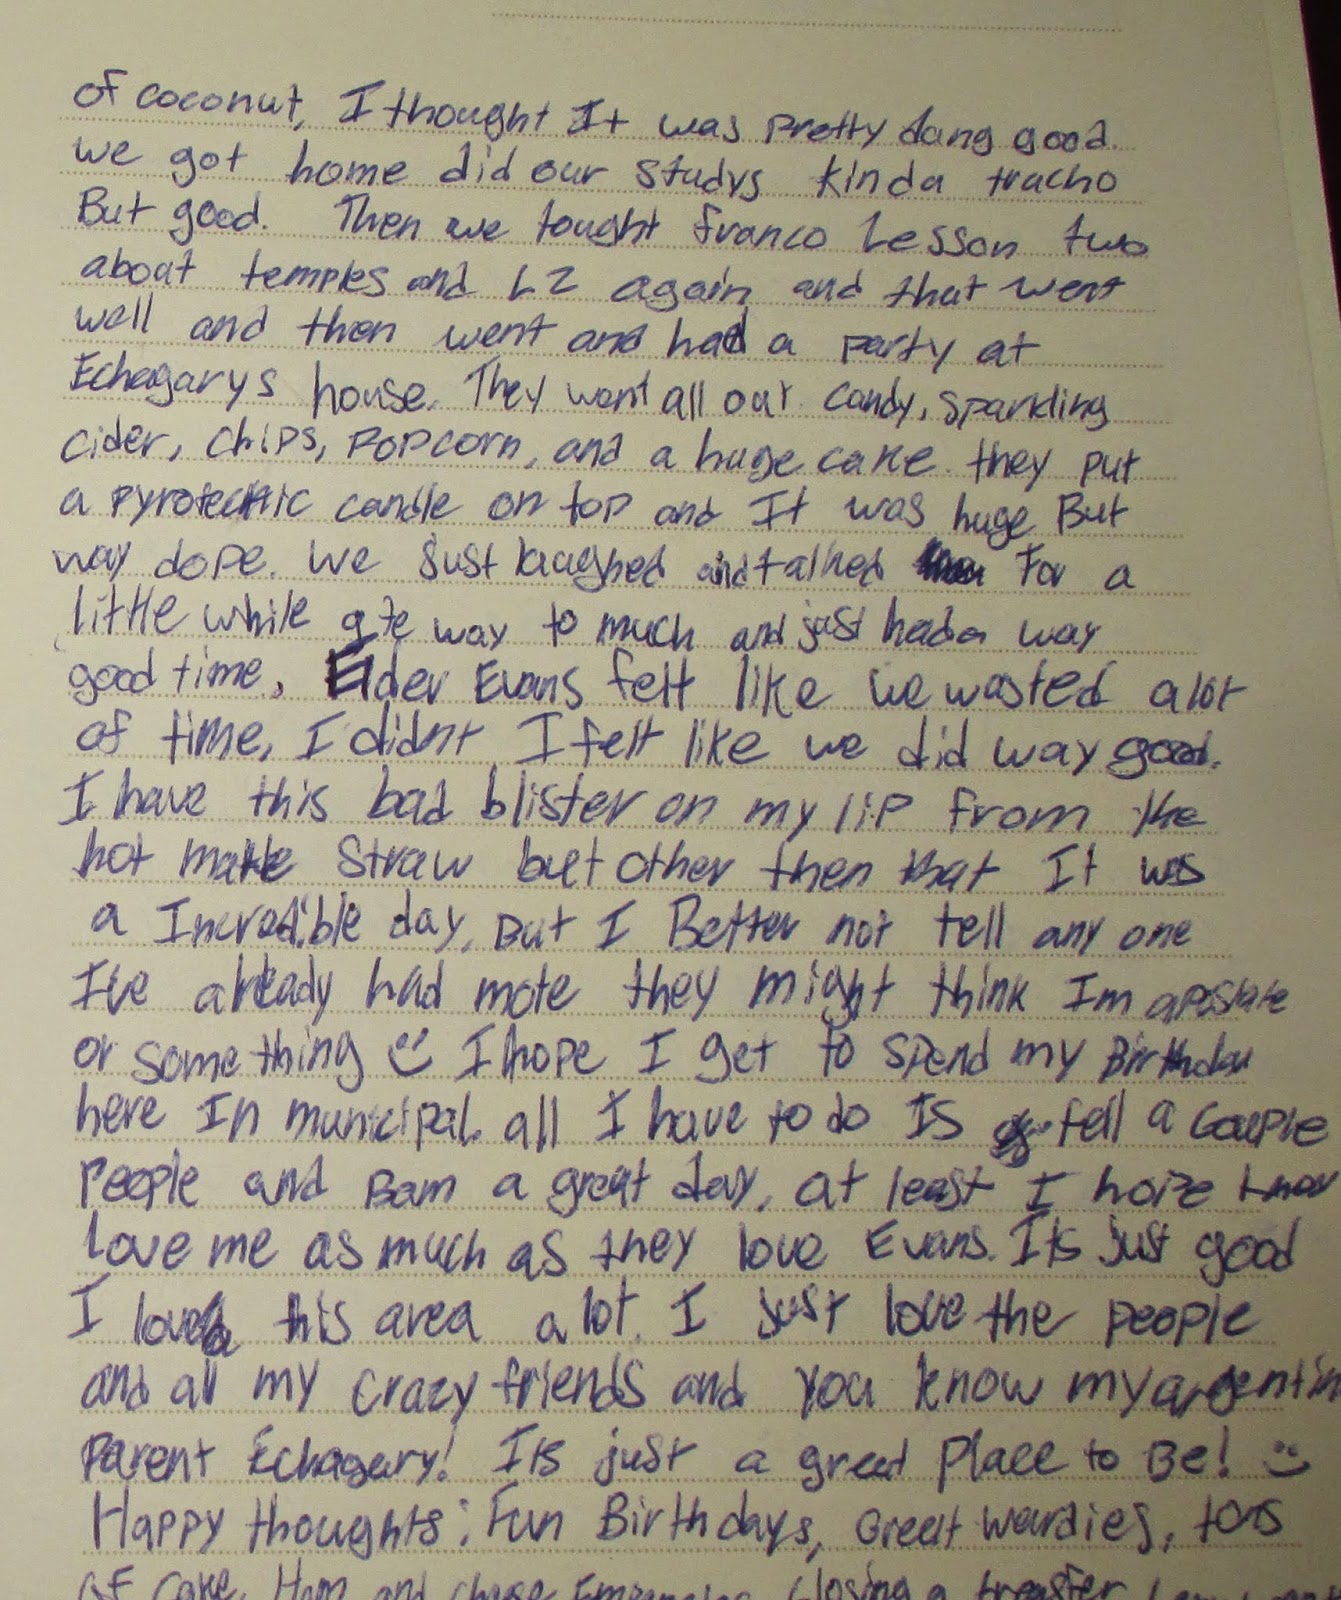 of coconut, I thought It was pretty dang good.
we got home did our studys kinda tracho
But good. Then we tought franco Lesson two
about temples and L2 again and that went
well and then went and had a party at
Echagarys house. They went all out candy, sparkling
cider, chips, popcorn, and a huge cake they put
a pyrotechtic candle on top and It was huge But
way dope. we just laughed and talked for a
little while ate way to much and just had a way
good time, Elder Evans felt like we wasted alot
of time, I didnt I felt like we did way good.
I have this bad blister on my lip from the
hot matte straw but other then that It was
a Incredible day, But I Better not tell any one
I've already had mote they might think Im apostate
or something I hope I get to spend my Birthday
here In municipal. all I have to do Is tell a couple
people and Bam a great day, at least I hope they
Love me as much as they love Evans. Its just good
I love this area a lot. I just love the people
and all my crazy friends and you know my argentin
Parent Echagary! Its just a great place to Be!
Happy thoughts: Fun Birthdays, Great wardies, tons
of cake, Ham and chese Empanadas, closing a transfer